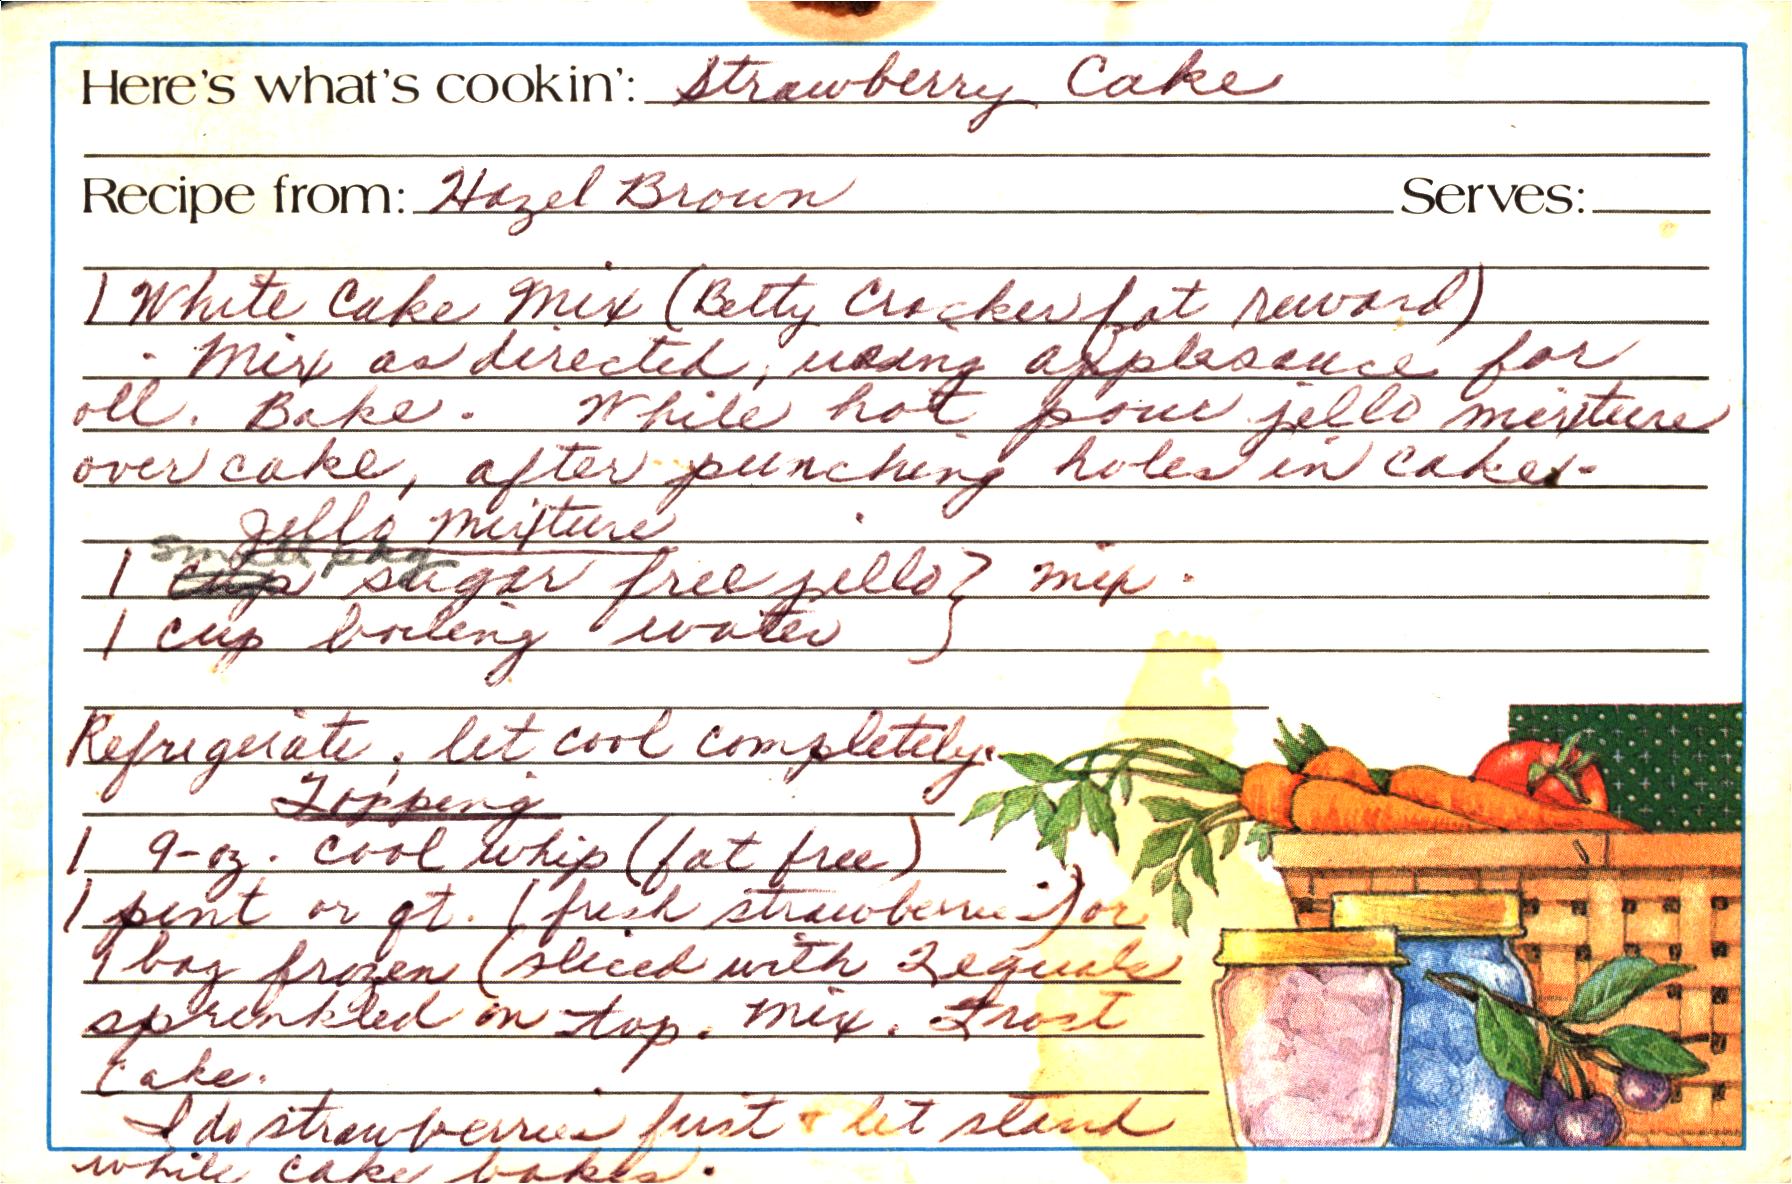 Here's what's cookin': Strawberry Cake
Recipe from: Hazel Brown Serves:
1 White Cake Mix (Betty Crocker fat reward)
. Mix as directed, using applesauce for
oil. Bake. While hot pour jello mixture
over cake, after punching holes in cake.
Jello Mixture
small pkg
1 cup sugar free jello } mix.
1 cup boiling water
Refrigerate, let cool completely.
Topping
1 9-oz. cool whip (fat free)
1 pint or qt. (fresh strawberries) or
1 bag frozen (sliced with 2 equals
sprinkled on top. Mix. Frost
Cake.
I do strawberries first & let stand
while cake bakes.